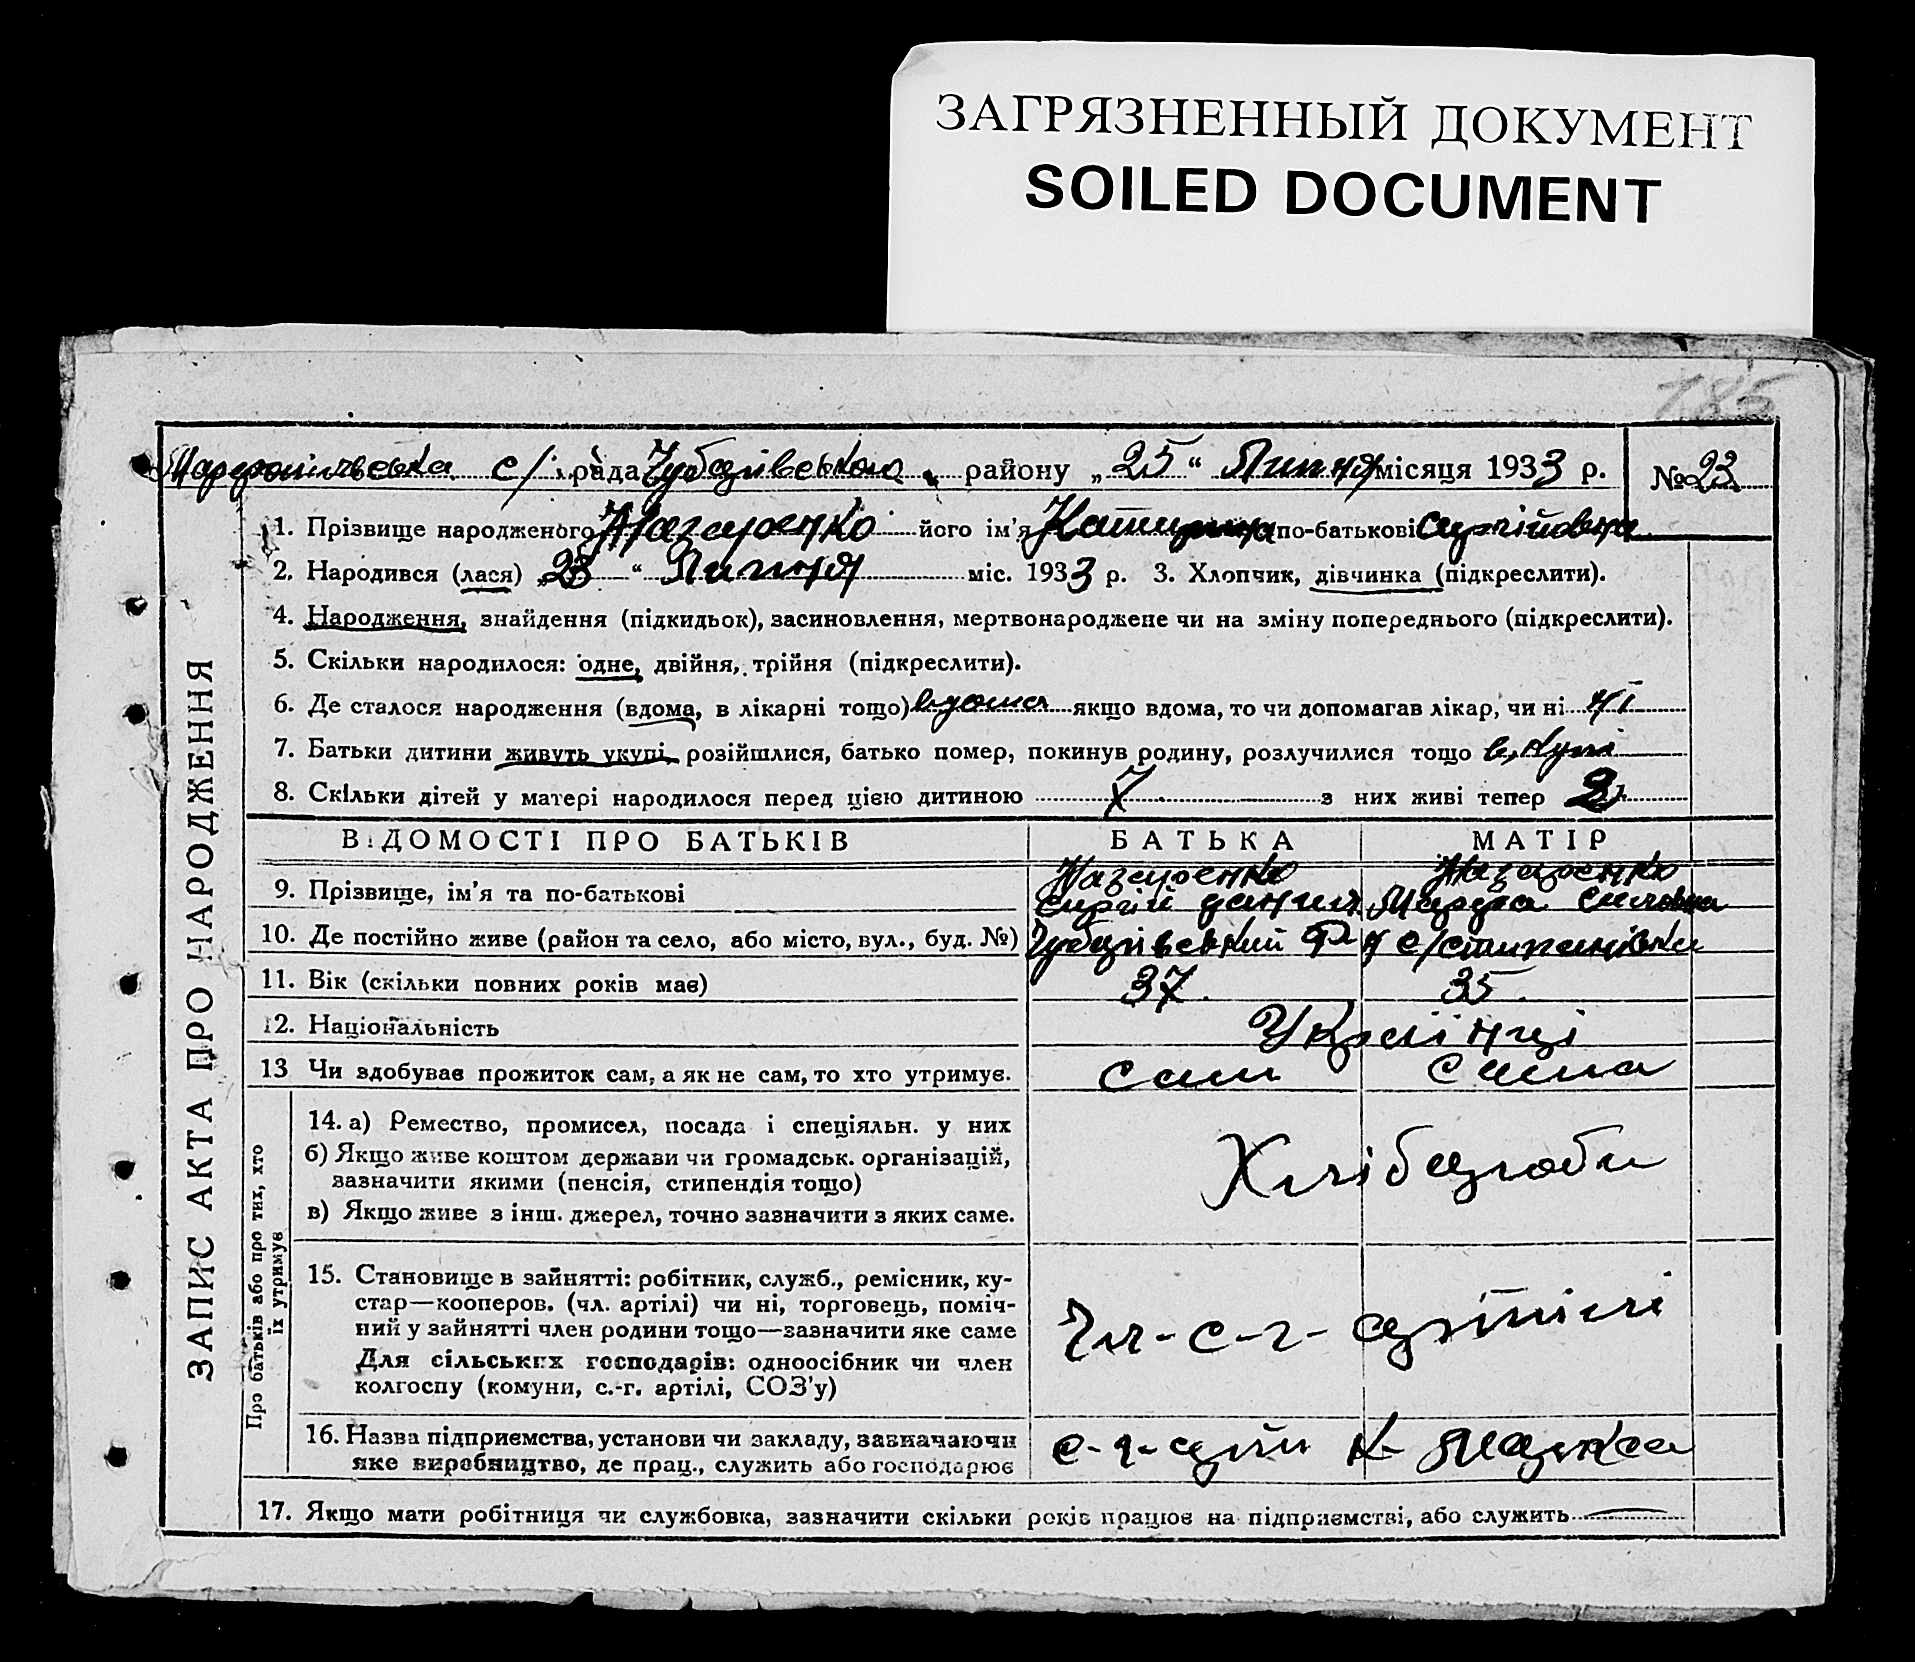 ЗАГРЯЗНЕННЫЙ ДОКУМЕНТ
SOILED DOCUMENT
185
с/рада Чубарівського району „25“ Липня місяця 1933 р. №23
ЗАПИС АКТА ПРО НАРОДЖЕННЯ
1. Прізвище народженого Назаренко його ім'я Катерина по-батькові Сергіївна
2. Народився (лася) „23“ Липня міс. 1933 р. 3. Хлопчик, дівчинка (підкреслити).
4. Народження, знайдення (підкидьок), засиновлення, мертвонароджене чи на зміну попереднього (підкреслити).
5. Скільки народилося: одне, двійня, трійня (підкреслити).
6. Де сталося народження (вдома, в лікарні тощо) вдома якщо вдома, то чи допомагав лікар, чи ні ні
7. Батьки дитини живуть укупі, розійшлися, батько помер, покинув родину, розлучилися тощо вкупі
8. Скільки дітей у матері народилося перед цією дитиною 7 з них живі тепер 2
ВІДОМОСТІ ПРО БАТЬКІВ БАТЬКА МАТІР
9. Прізвище, ім'я та по-батькові Назаренко Сергій Данил Назаренко Марфа
10. Де постійно живе (район та село, або місто, вул., буд. №) Чубарівський Р-н с/Степанівка
11. Вік (скільки повних років має) 37. 35.
12. Національність Українці
13 Чи здобував прожиток сам, а як не сам, то хто утримує. сам сама
Про батьків або про тих, хто їх утримує
14. а) Ремество, промисел, посада і спеціяльн. у них Хлібороби
б) Якщо живе коштом держави чи громадськ. організацій,
зазначити якими (пенсія, стипендія тощо)
в) Якщо живе з інш. джерел, точно зазначити з яких саме.
15. Становище в зайнятті: робітник, служб., ремісник, ку-
стар—кооперов. (чл. артілі) чи ні, торговець, поміч-
ний у зайнятті член родини тощо—зазначити яке саме
Для сільських господарів: одноосібник чи член
колгоспу (комуни, с.-г. артілі, СОЗ'у)
Чл-с-г- артілі
16. Назва підприємства, установи чи закладу, зазначаючи
яке виробництво, де прац., служить або господарює
с-г-арті К- Маркса
17. Якщо мати робітниця чи службовка, зазначити скільки років працює на підприємстві, або служить